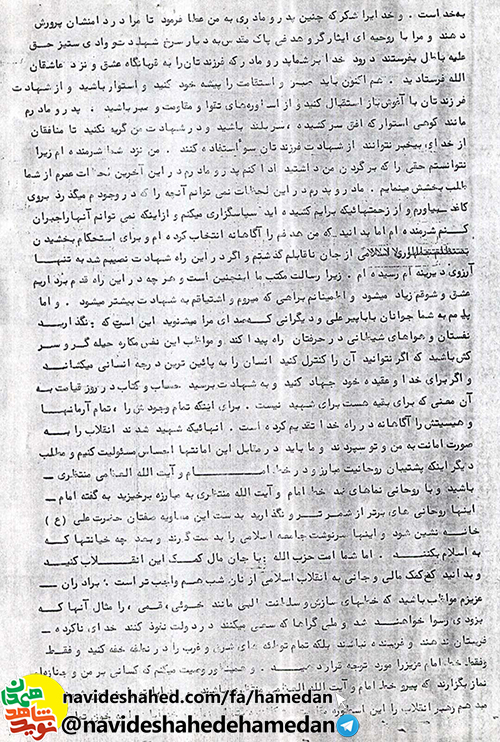 بهخداست . و خدا را شکر که چنین پدر و مادری به من عطا فرمود تا مرا در دامنشان پرورش
دهند و مرا با روحیه ای ایثارگر و هدفی پاک و مقدس به دیار سرخ شهادت و وادی ستیز حق
علیه باطل بفرستند درود خدا بر شما پدر و مادر که فرزندتان را به قربانگاه عشق و نزد عاشقان
الله فرستادید . هم اکنون باید صبر و استقامت را پیشه خود کنید و استوار باشید و از شهادت
فرزندتان با آغوش باز استقبال کنید و از اسوه‌های تقوا و مقاومت و صبر باشید . پدر و مادرم
مانند کوهی استوار که افق سر کشیده ، سر بلند باشید و در شهادت من گریه نکنید تا منافقان
از خدای بیخبر نتوانند از شهادت فرزندتان سو استفاده کنند . من نزد شما شرمنده ام زیرا
نتوانستم حقی را که بر گردن من داشتید ادا کنم پدر و مادرم در این آخرین لحظات عمرم از شما
طلب بخشش مینمایم . مادر و پدرم در این لحظات نمی توانم آنچه را که در وجودم میگذرد بروی
کاغذ بیاورم و از زحمتهائیکه برایم کشیده اید سپاسگزاری میکنم و از اینکه نمی توانم آنها را جبران
کنم شرمنده ام اما بدانید که من هدفم را آگاهانه انتخاب کرده ام و برای استحکام بخشیدن
از جان ناقابلم گذشتم و اگر در این راه شهادت نصیبم شد به تنها
آرزوی دیرینه ام رسیده ام . زیرا رسالت مکتب ما اینچنین است و هر چه در این راه قدم برداریم
عشق و شوقم زیاد میشود و اطمینانم براهی که میروم و اشتیاقم به شهادت بیشتر میشود . و اما
پیام به شما جوانان بابا پیر علی و دیگرانی که صدای مرا میشنوید این است که : نگذارید
نفستان و هواهای شیطانی در حرفتان راه پیدا کند و مواظب این نفس مکاره حیله گر و سر
کش باشید که اگر نتوانید آن را کنترل کنید انسان را به پائین ترین درجه انسانی میکشاند
و اگر برای خدا و عقیده خود جهاد کنید و به شهادت برسید حساب و کتاب در روز قیامت به
آن معنی که برای بقیه هست برای شهید نیست . برای اینکه تمام وجودش را ، تمام آرمانها
و هستیش را آگاهانه در راه خدا تقدیم کرده است . آنهائیکه شهید شدند انقلاب را به
صورت امانت به من و تو سپردند و ما باید در مقابل این امانتها احساس مسئولیت کنیم و مطلب
دیگر اینکه پشتیبان روحانیت مبارز و در خط امام و آیت الله العظمی منتظری
باشید و با روحانی نماهای ضد خط امام و آیت الله منتظری به مبارزه برخیزید به گفته امام
اینها روحانی های برتر از شمرتر و نگذارید بدست این معاویه صفتان حضرت علی ( ع )
خانه نشین شود و اینها سرنوشت جامعه اسلامی را بدست گیرند و بعد چه خیانتها که
به اسلام بکنند . اما شما امت حزب الله با جان مال کمک این انقلاب کنید
و بدانید که کمک مالی و جانی به انقلاب اسلامی از نان شب هم واجب تر است . برادران
عزیزم مواظب باشید که خطهای سازش و سلطنت طلبی مانند خوئی ، قمی ، را مثال آنها که
بزودی رسوا خواهند شد و ملی گراها که سعی میکنند در دولت نفوذ کنند خدای ناکرده
فرصتان ندهند و فریبنده نباشند بلکه تمام توطئه های شرق و غرب را در نطفه خفه کنید و فقط
وفقط خط امام عزیز را مورد توجه قرار دهید . و همینطور وصیت میکنم که کسانی بر من و جنازه‌ام
نماز بگزارند که پیرو خط امام و آیت الله
رهبر انقلاب را این اسطوره
نوید شاهد همدان
navideshahed.com/fa/hamedan
@navideshahedehamedan